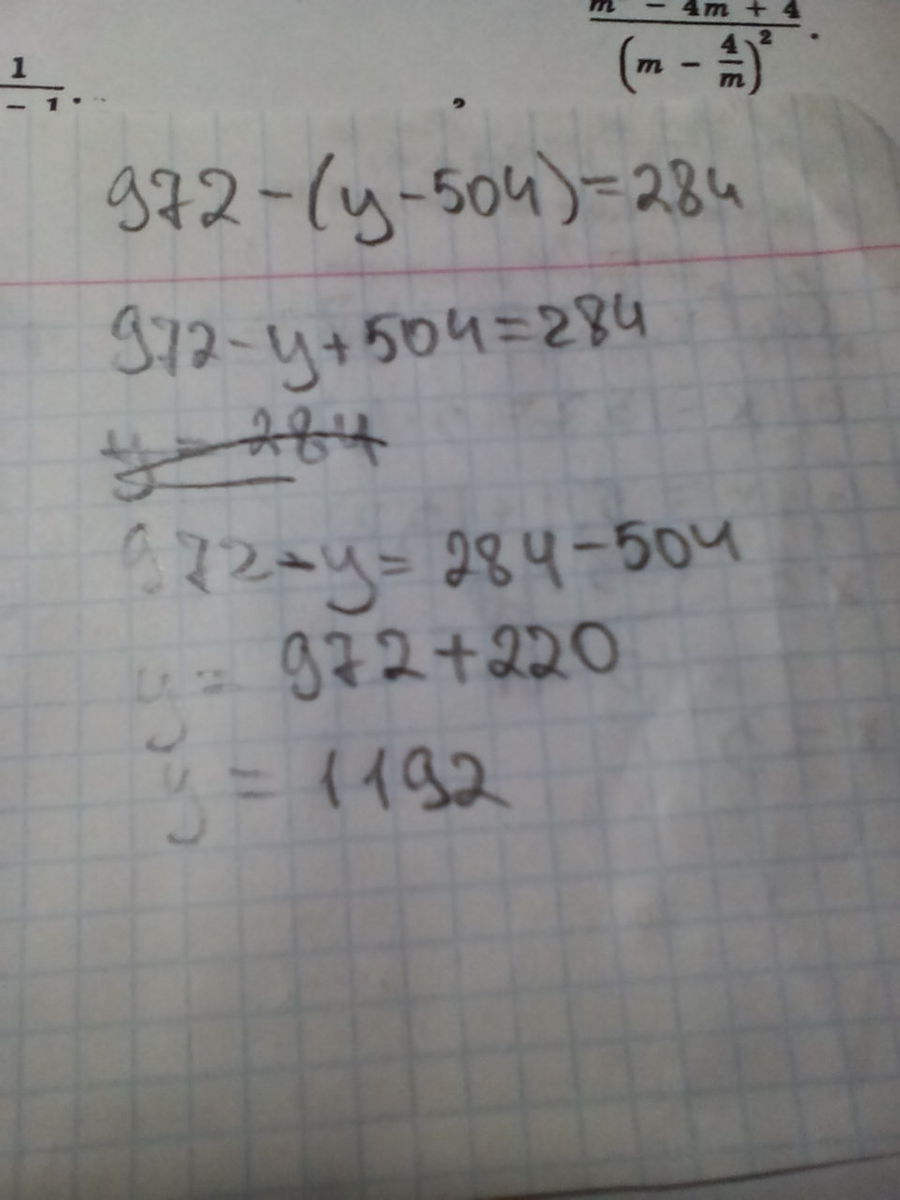 m² - 4m + 4
(m - 4/m)².
1
- 1.
,
972-(y-504)=284
972-y+504=284
y = 284
972-y= 284-504
y= 972+220
y = 1192